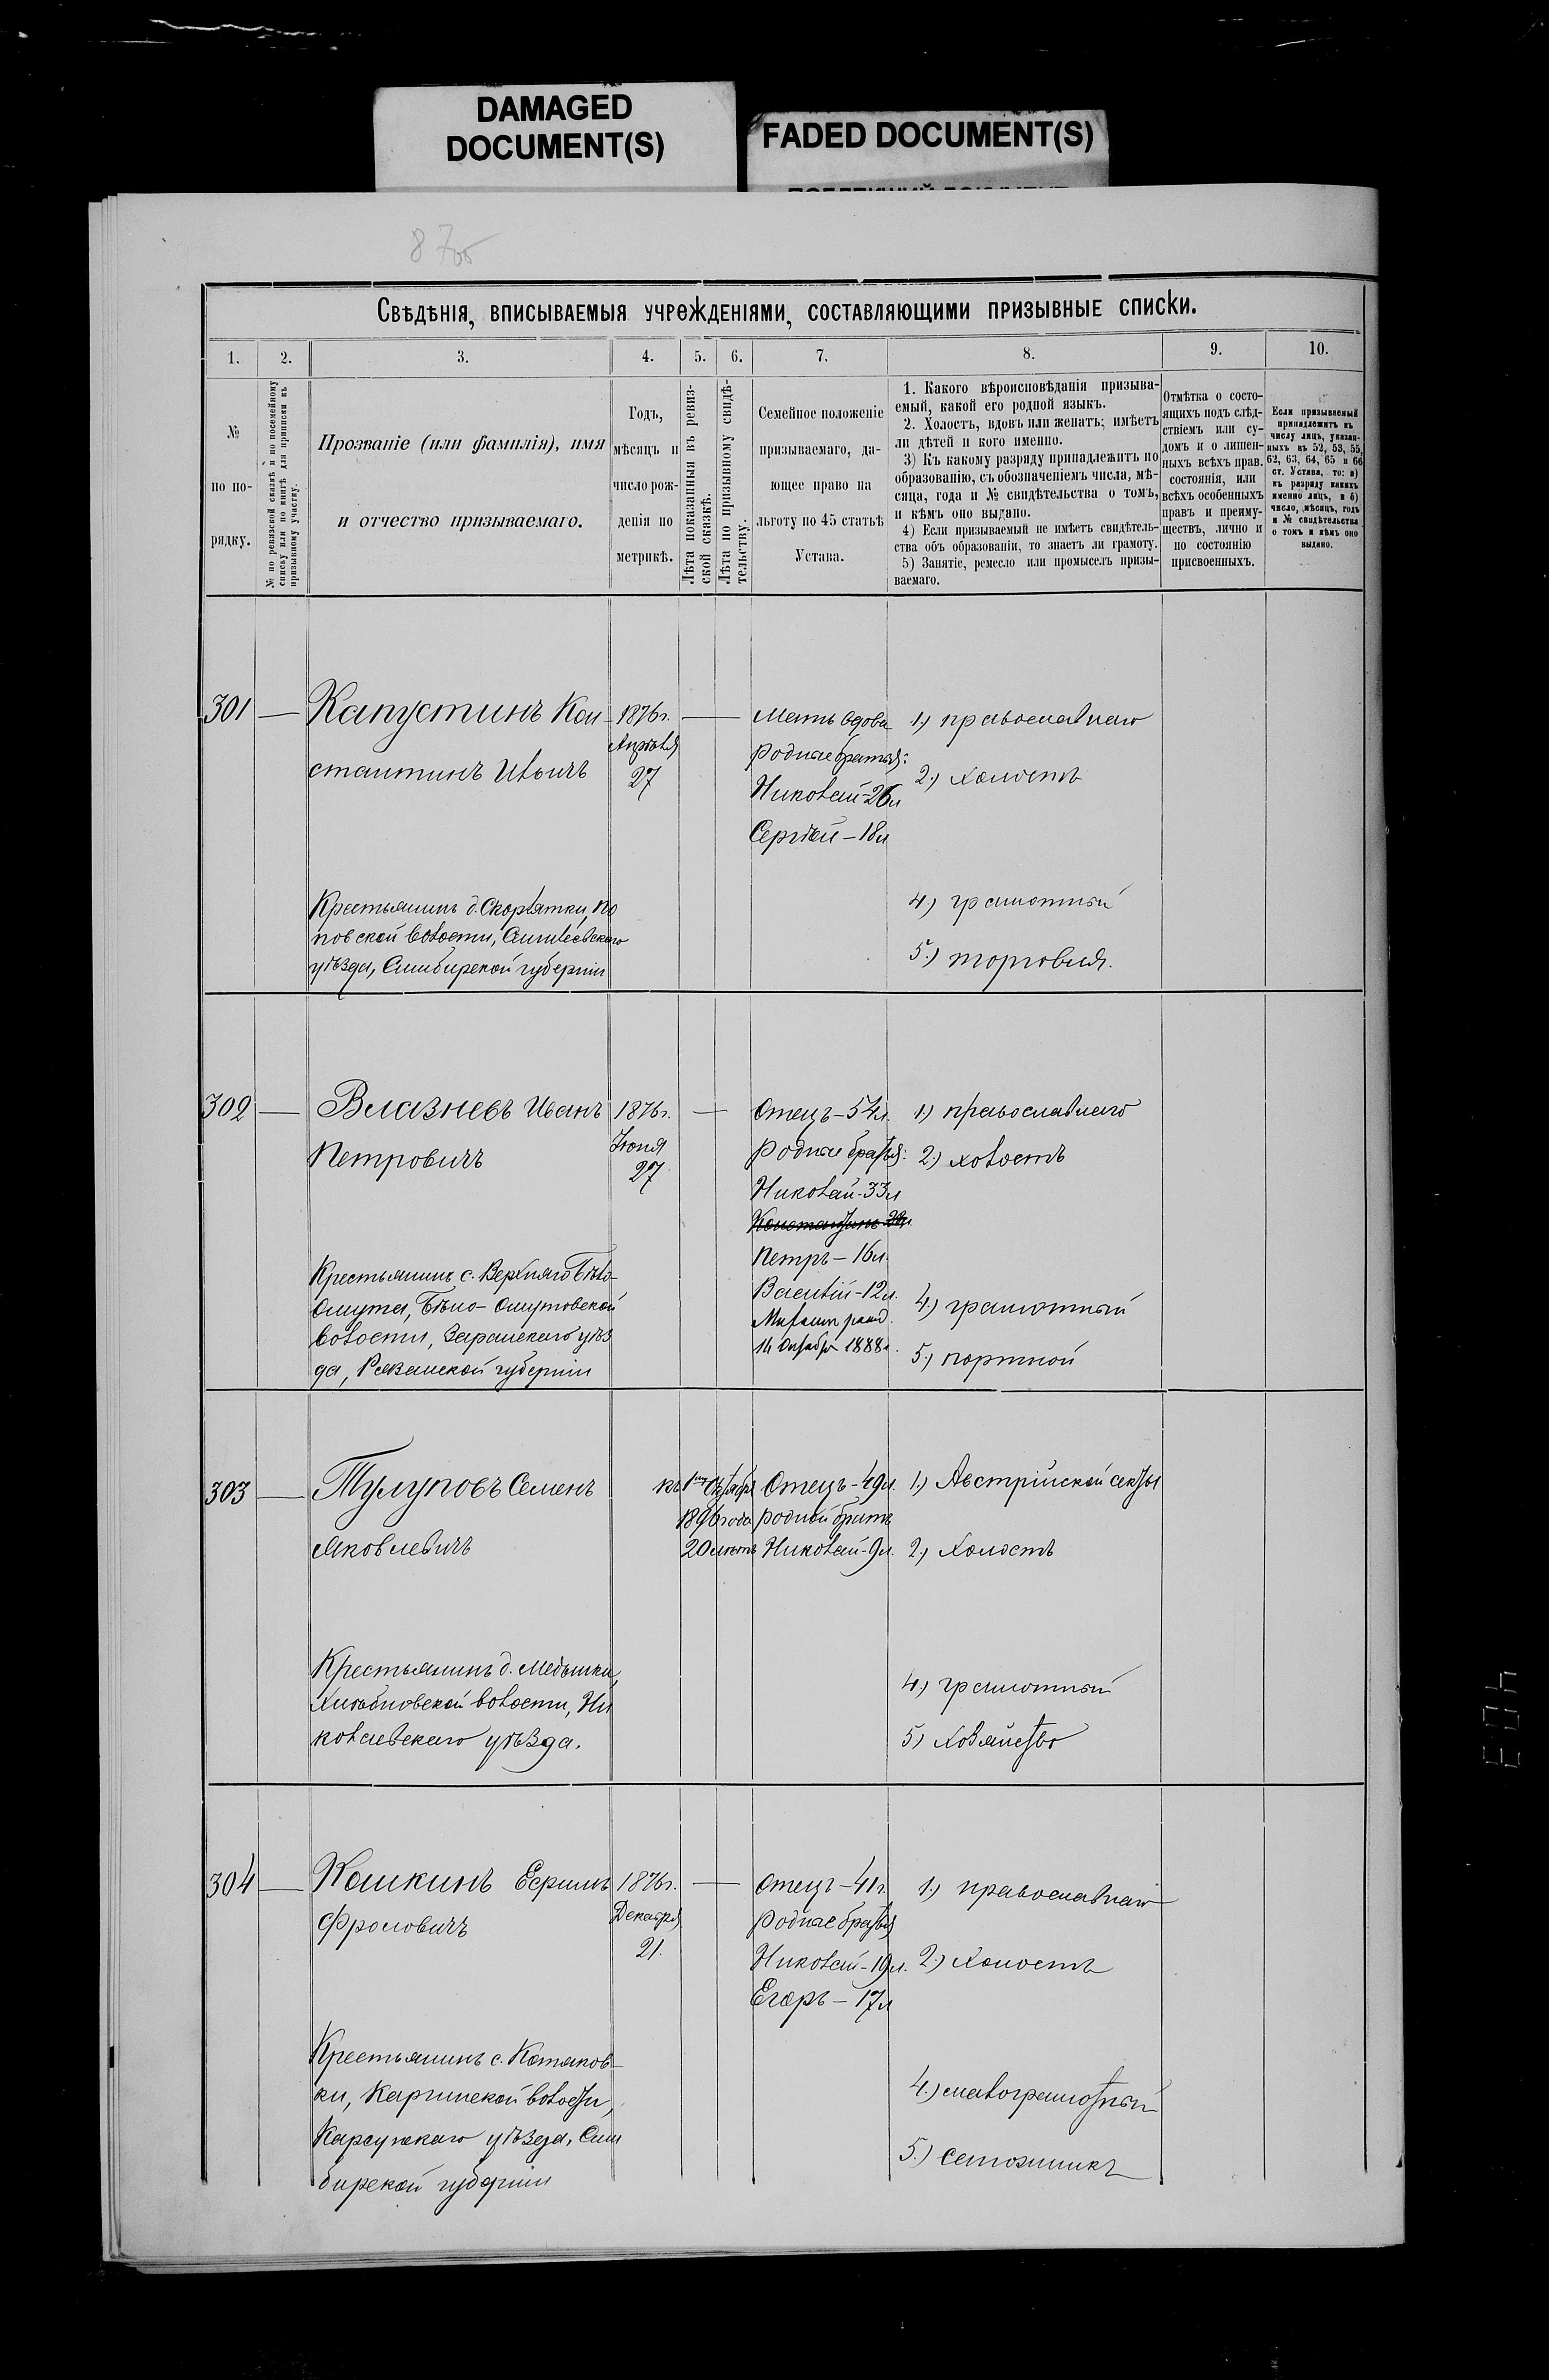 DAMAGED
DOCUMENT(S)
FADED DOCUMENT(S)
87об
Свѣдѣнія, вписываемыя учрежденіями, составляющими призывные списки.
1.
2.
3.
4.
5.
6.
7.
8.
9.
10.
№
по по-
рядку.
№ по ревизской сказкѣ и по посемейному
списку или по книгѣ для приписки къ
призывному участку.
Прозваніе (или фамилія), имя
и отчество призываемаго.
Годъ,
мѣсяцъ и
число рож-
денія по
метрикѣ.
Лѣта показанныя въ ревиз-
ской сказкѣ.
Лѣта по призывному свидѣ-
тельству.
Семейное положеніе
призываемаго, да-
ющее право на
льготу по 45 статьѣ
Устава.
1. Какого вѣроисповѣданія призыва-
емый, какой его родной языкъ.
2. Холостъ, вдовъ или женатъ; имѣетъ
ли дѣтей и кого именно.
3) Къ какому разряду принадлежитъ по
образованію, съ обозначеніемъ числа, мѣ-
сяца, года и № свидѣтельства о томъ,
и кѣмъ оно выдано.
4) Если призываемый не имѣетъ свидѣтель-
ства объ образованіи, то знаетъ ли грамоту.
5) Занятіе, ремесло или промыселъ призы-
ваемаго.
Отмѣтка о состо-
ящихъ подъ слѣд-
ствіемъ или су-
домъ и о лишен-
ныхъ всѣхъ прав.
состоянія, или
всѣхъ особенныхъ
правъ и преиму-
ществъ, лично и
по состоянію
присвоенныхъ.
Если призываемый
принадлежитъ къ
числу лицъ, указан-
ныхъ въ 52, 53, 55,
62, 63, 64, 65 и 66
ст. Устава, то: а)
къ разряду какихъ
именно лицъ, и б)
число, мѣсяцъ, годъ
и № свидѣтельства
о томъ и кѣмъ оно
выдано.
301
Капустинъ Кон-
стантинъ Ильичъ
Крестьянинъ д. Скорлятки, По
повской волости, Сингилеевскаго
уѣзда, Симбирской губерніи
1876 г.
Апрѣля
27
Мать вдова
родные братья:
Николай-26 л
Сергѣй-18 л
1.) православнаго
2.) холостъ
4.) грамотный
5.) торговля.
302
Влазневъ Иванъ
Петровичъ
Крестьянинъ с. Верхняго Бѣло-
омута, Бѣло-омутовской
волости, Зарайскаго уѣз
да, Рязанской губерніи
1876 г.
Іюня
27
Отецъ-54 л.
родные братья:
Николай-33 л
Константинъ
Петръ-16 л.
Василій-12 л.
14 Октября 1888 г.
1.) православнаго
2.) холостъ
4.) грамотный
5.) портной
303
Тулуповъ Семенъ
Яковлевичъ
Крестьянинъ д. Медынки,
волости, Ни
колаевскаго уѣзда.
къ 1му Октября
1896 года
20 лѣтъ
Отецъ-49 л.
родной братъ
Николай-9 л.
1.) Австрійской секты
2.) холостъ
4.) грамотный
5.) хозяйство
304
Кошкинъ Ефимъ
Фроловичъ
Крестьянинъ с. Котяков-
ки, волости,
Карсунскаго уѣзда, Сим
бирской губерніи
1876 г.
Декабря
21.
Отецъ-41 г.
родные братья
Николай-19 л.
Егоръ-17 л
1.) православнаго
2.) холостъ
4.) малограмотный
5.) сапожникъ
403